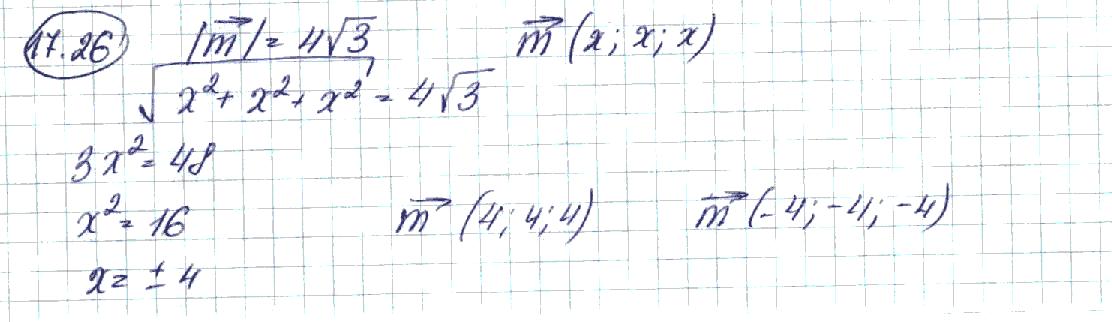 17.26 |m⃗| = 4√3 m⃗ (x; x; x)
√(x² + x² + x²) = 4√3
3x² = 48
x² = 16 m⃗ (4; 4; 4) m⃗ (-4; -4; -4)
x = ± 4